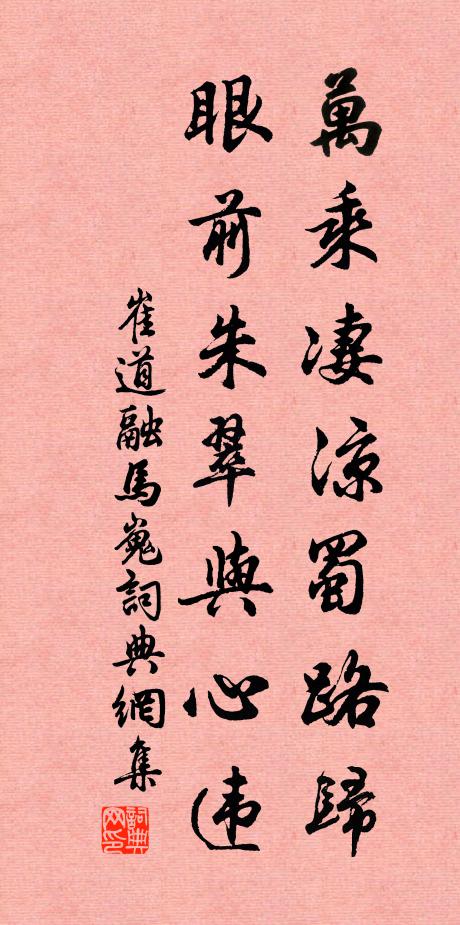 萬乘淒涼蜀路歸
眼前朱翠與心違
崔道融馬嵬詞典網集
詞典网印